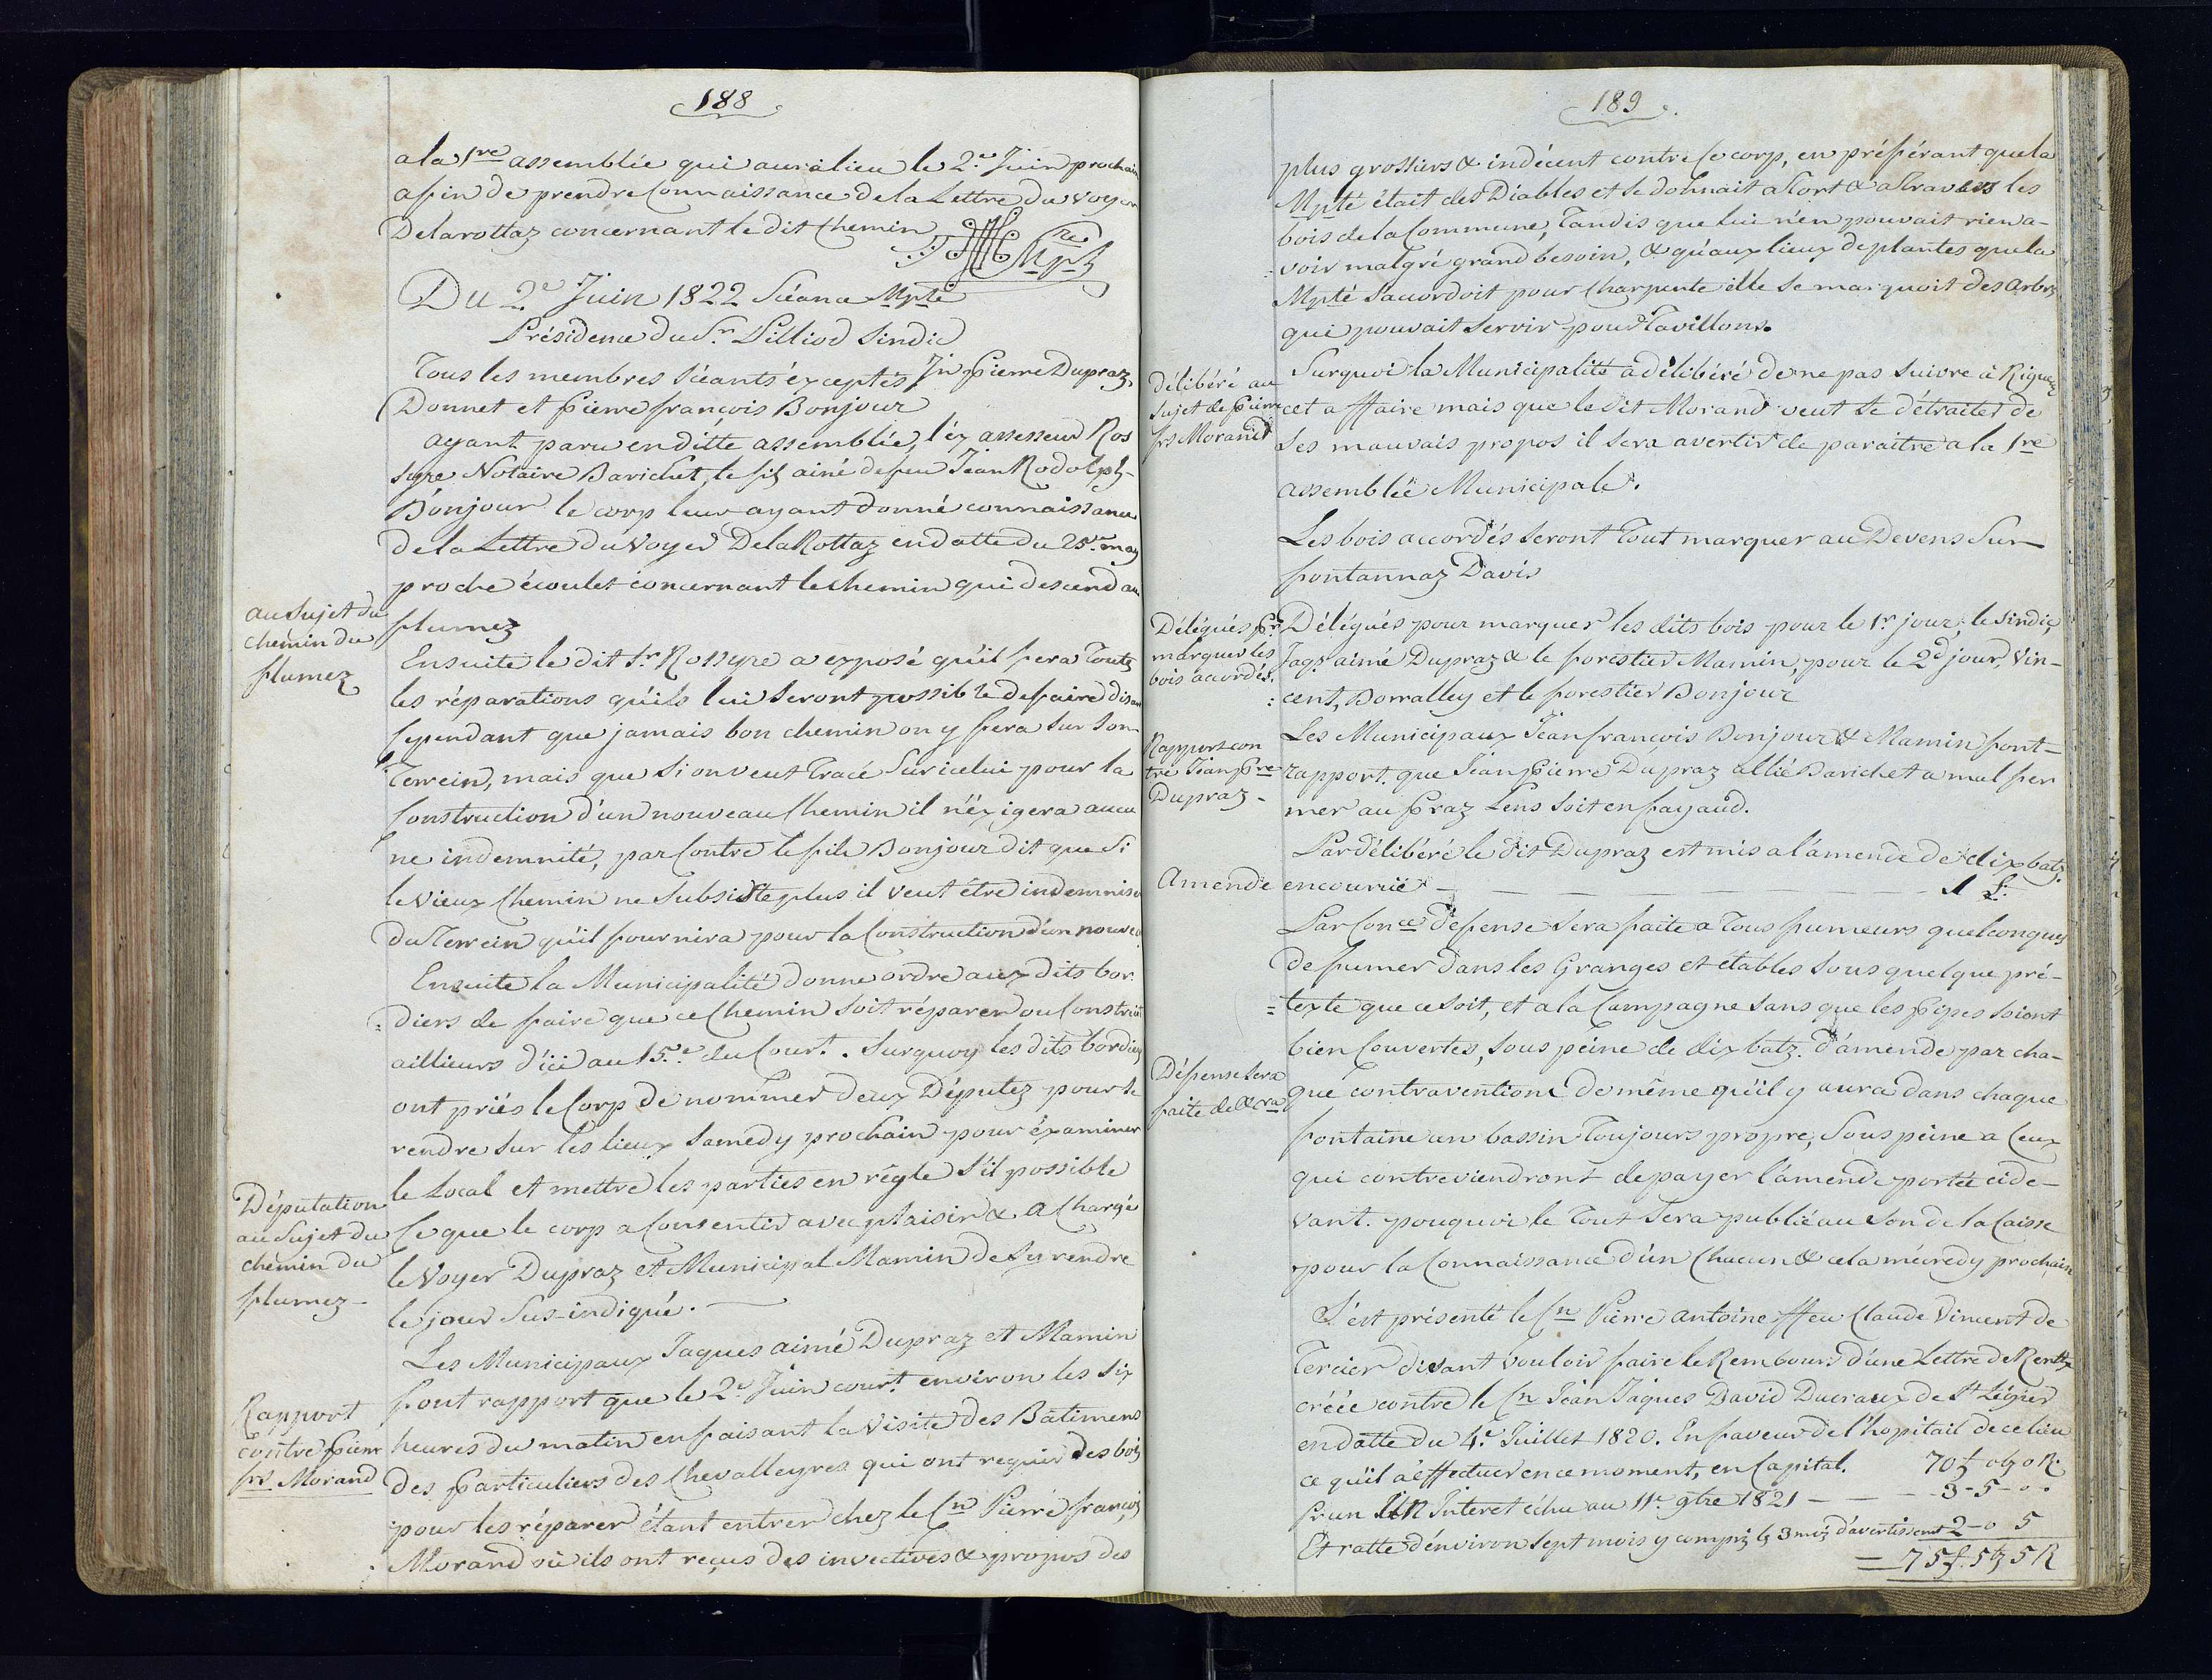 188
a la 1re assemblée qui aura lieu le 2e Juin prochain
afin de prendre Connaissance de la Lettre du voyer
Delarottaz concernant le dit Chemin
Du 2e Juin 1822 Séance Mpté
Présidence du Sr. Pilliod Sindic
Tous les membres séants éxceptés, Jn Pierre Dupraz,
Donnet et Pierre françois Bonjour
ayant paru en ditte assemblée, l'éx assesseur Ros
syre Notaire Barichet, le fils ainé defeu Jean Rodolph-
Bonjour le corp leur ayant donné connaissance
de la Lettre du Voyer DelaRottaz en datte du 25e may
proche écoulet concernant le chemin qui descend au
au Sujet du
chemin du
flumez
flumez
Ensuite le dit Sr. Rossyre a exposé qu'il fera Toutes
les réparations qu'ils lui seront possible de faire disant
Cependant que jamais bon chemin on y fera sur son
Terrein, mais que si on veut Tracé sur icelui pour la
Construction d'un nouveau Chemin il n'éxigera aucu
ne indemnité, par Contre le fils Bonjour dit que Si
le Vieux Chemin ne Subsiste plus il veut être indemnisé
du Terrein qu'il fournira pour la Construction d'un nouveau
Ensuite la Municipalité donne ordre aux dits bor-
diers de faire que ce Chemin soit réparer ou Construit
aillieurs d'ici au 15e du Court. Surquoy les dits bordiers
ont priés le Corp de nommer deux Députez pour se
rendre sur les lieux Samedy prochain pour éxaminer
Députation
au Sujet du
chemin du
flumez
le Local et mettre les parties en règle s'il possible
Ce que le corp a Consentir avec plaisir & a Chargé
le Voyer Dupraz et Municipal Mamin de sy rendre
le jour Sus-indiqué.
Les Municipaux Jaques aimé Dupraz et Mamin
Rapport
contre Pierre
frs Morand
font rapport que le 2e Juin court. environ les six
heures du matin en faisant la Visite des Bâtimens
des Particuliers des Chevalleyres qui ont requir des bois
pour les réparer étant entrer chez le Cn Pierre françois
Morand où ils ont reçus des invectives & propos des
189
plus grossiers & indécent contre le corp, en préférant que la
Mpté était des Diables et se donnait a Tort & a Travers les
bois de la Commune, Tandis que lui n'en pouvait rien a-
voir malgré grand besoin, & qu'aux lieux de plantes que la
Mpté s'accordoit pour Charpente elle se marquoit des arbres
qui pouvait servir pour Tavillons.
délibéré au
sujet de Pierre
frs Morand
Surquoi la Municipalité a délibéré de ne pas suivre à Rigueur
cet affaire mais que le dit Morand veut se détraiter de
ses mauvais propos il sera avertir de paraitre a la 1re
assemblée Municipale.
Les bois accordés seront Tout marquer au Devens Sur
fontannaz Davis
Délégués pr
marquer les
bois accordés.
Délégués pour marquer les dits bois pour le 1r jour, le Sindic,
Jaqs aimé Dupraz & le forestier Mamin, pour le 2d jour, Vin-
cent, Dorralley et le forestier Bonjour
Rapport con
tre Jean Pre
Dupraz
Les Municipaux Jean francois Bonjour & Mamin font
rapport que Jean Pierre Dupraz allié Barichet a mal fer
mer au Praz Lens soit en fayaud.
Par délibéré le dit Dupraz est mis a l'amende de dix batz.
Amende
encourue 1 L.
Par Conce défense sera faite a Tous fumeurs quelconques
de fumer dans les Granges et étables sous quelque pré-
texte que ce soit, et a la Campagne sans que les Pipes soiont
bien Couvertes, sous peine de dix batz. d'amende par cha-
Défense sera
faite de &ra
que contravention de même qu'il y aura dans chaque
fontaine un bassin Toujours propre, sous peine a Ceux
qui contreviendront de payer l'amende portée cide-
vant. pouquoi le Tout Sera publié au Son de la Caisse
pour la Connaissance d'un Chacun & cela mécredy prochain
S'est présenté le Cn Pierre antoine ffeu Claude Vincent de
Tercier disant vouloir faire le Rembours d'une Lettre de Rentte
créée contre le Cn Jean Jaques David Ducraux de St Légier
en datte du 4e Juillet 1820. En faveur de l'hopitail de ce lieu
ce qu'il a éffectuer en ce moment, en Capital. 70 f. 0 bz 0 R.
Pr un Un Interet échu au 11e 9bre 1821 3-5-0.
Et ratte d'énviron sept mois y compris les 3 mois d'avertissemt 2-0 5
= 75 f. 5 bz 5 R